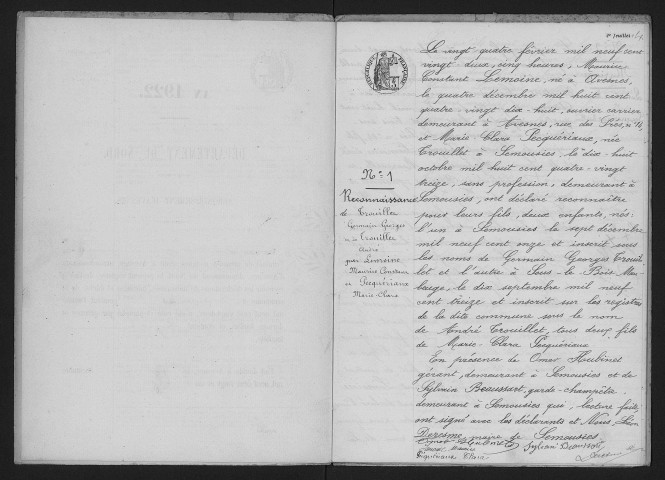 2e feuillet
Le vingt quatre février mil neuf cent
vingt deux, cinq heures, Maurice
Constant Lemoine, né à Avesnes,
le quatre décembre mil huit cent
quatre-vingt dix-huit, ouvrier carrier
demeurant à Avesnes, rue des Prés, n° 16,
et Marie Clara Pecquériaux, née
Trouillet à Semousies, le dix huit
octobre mil huit cent quatre-vingt
treize, sans profession, demeurant à
Semousies, ont déclaré reconnaître
pour leurs fils, deux enfants, nés:
l'un à Semousies le sept décembre
mil neuf cent onze et inscrit sous
les noms de Germain Georges Trouil
let et l'autre à Sous-le Bois Mau-
beuge, le dix septembre mil neuf
cent treize et inscrit sur les registres
de la dite commune sous le nom
de André Trouillet, tous deux fils
de Marie-Clara Pecquériaux
En présence de Omer Houbinet
gérant, demeurant à Semousies et de
Sylvain Beaussart, garde-champêtre
demeurant à Semousies qui, lecture faite
ont signé avec les déclarants et Nous, Léon
Deresme maire de Semousies.
N° 1
Reconnaissance
de Trouillet
Germain Georges
Trouillet
André
par Lemoine
Maurice Constant
et Pecquériaux
Marie-Clara
1922
DÉPARTEMENT DU NORD